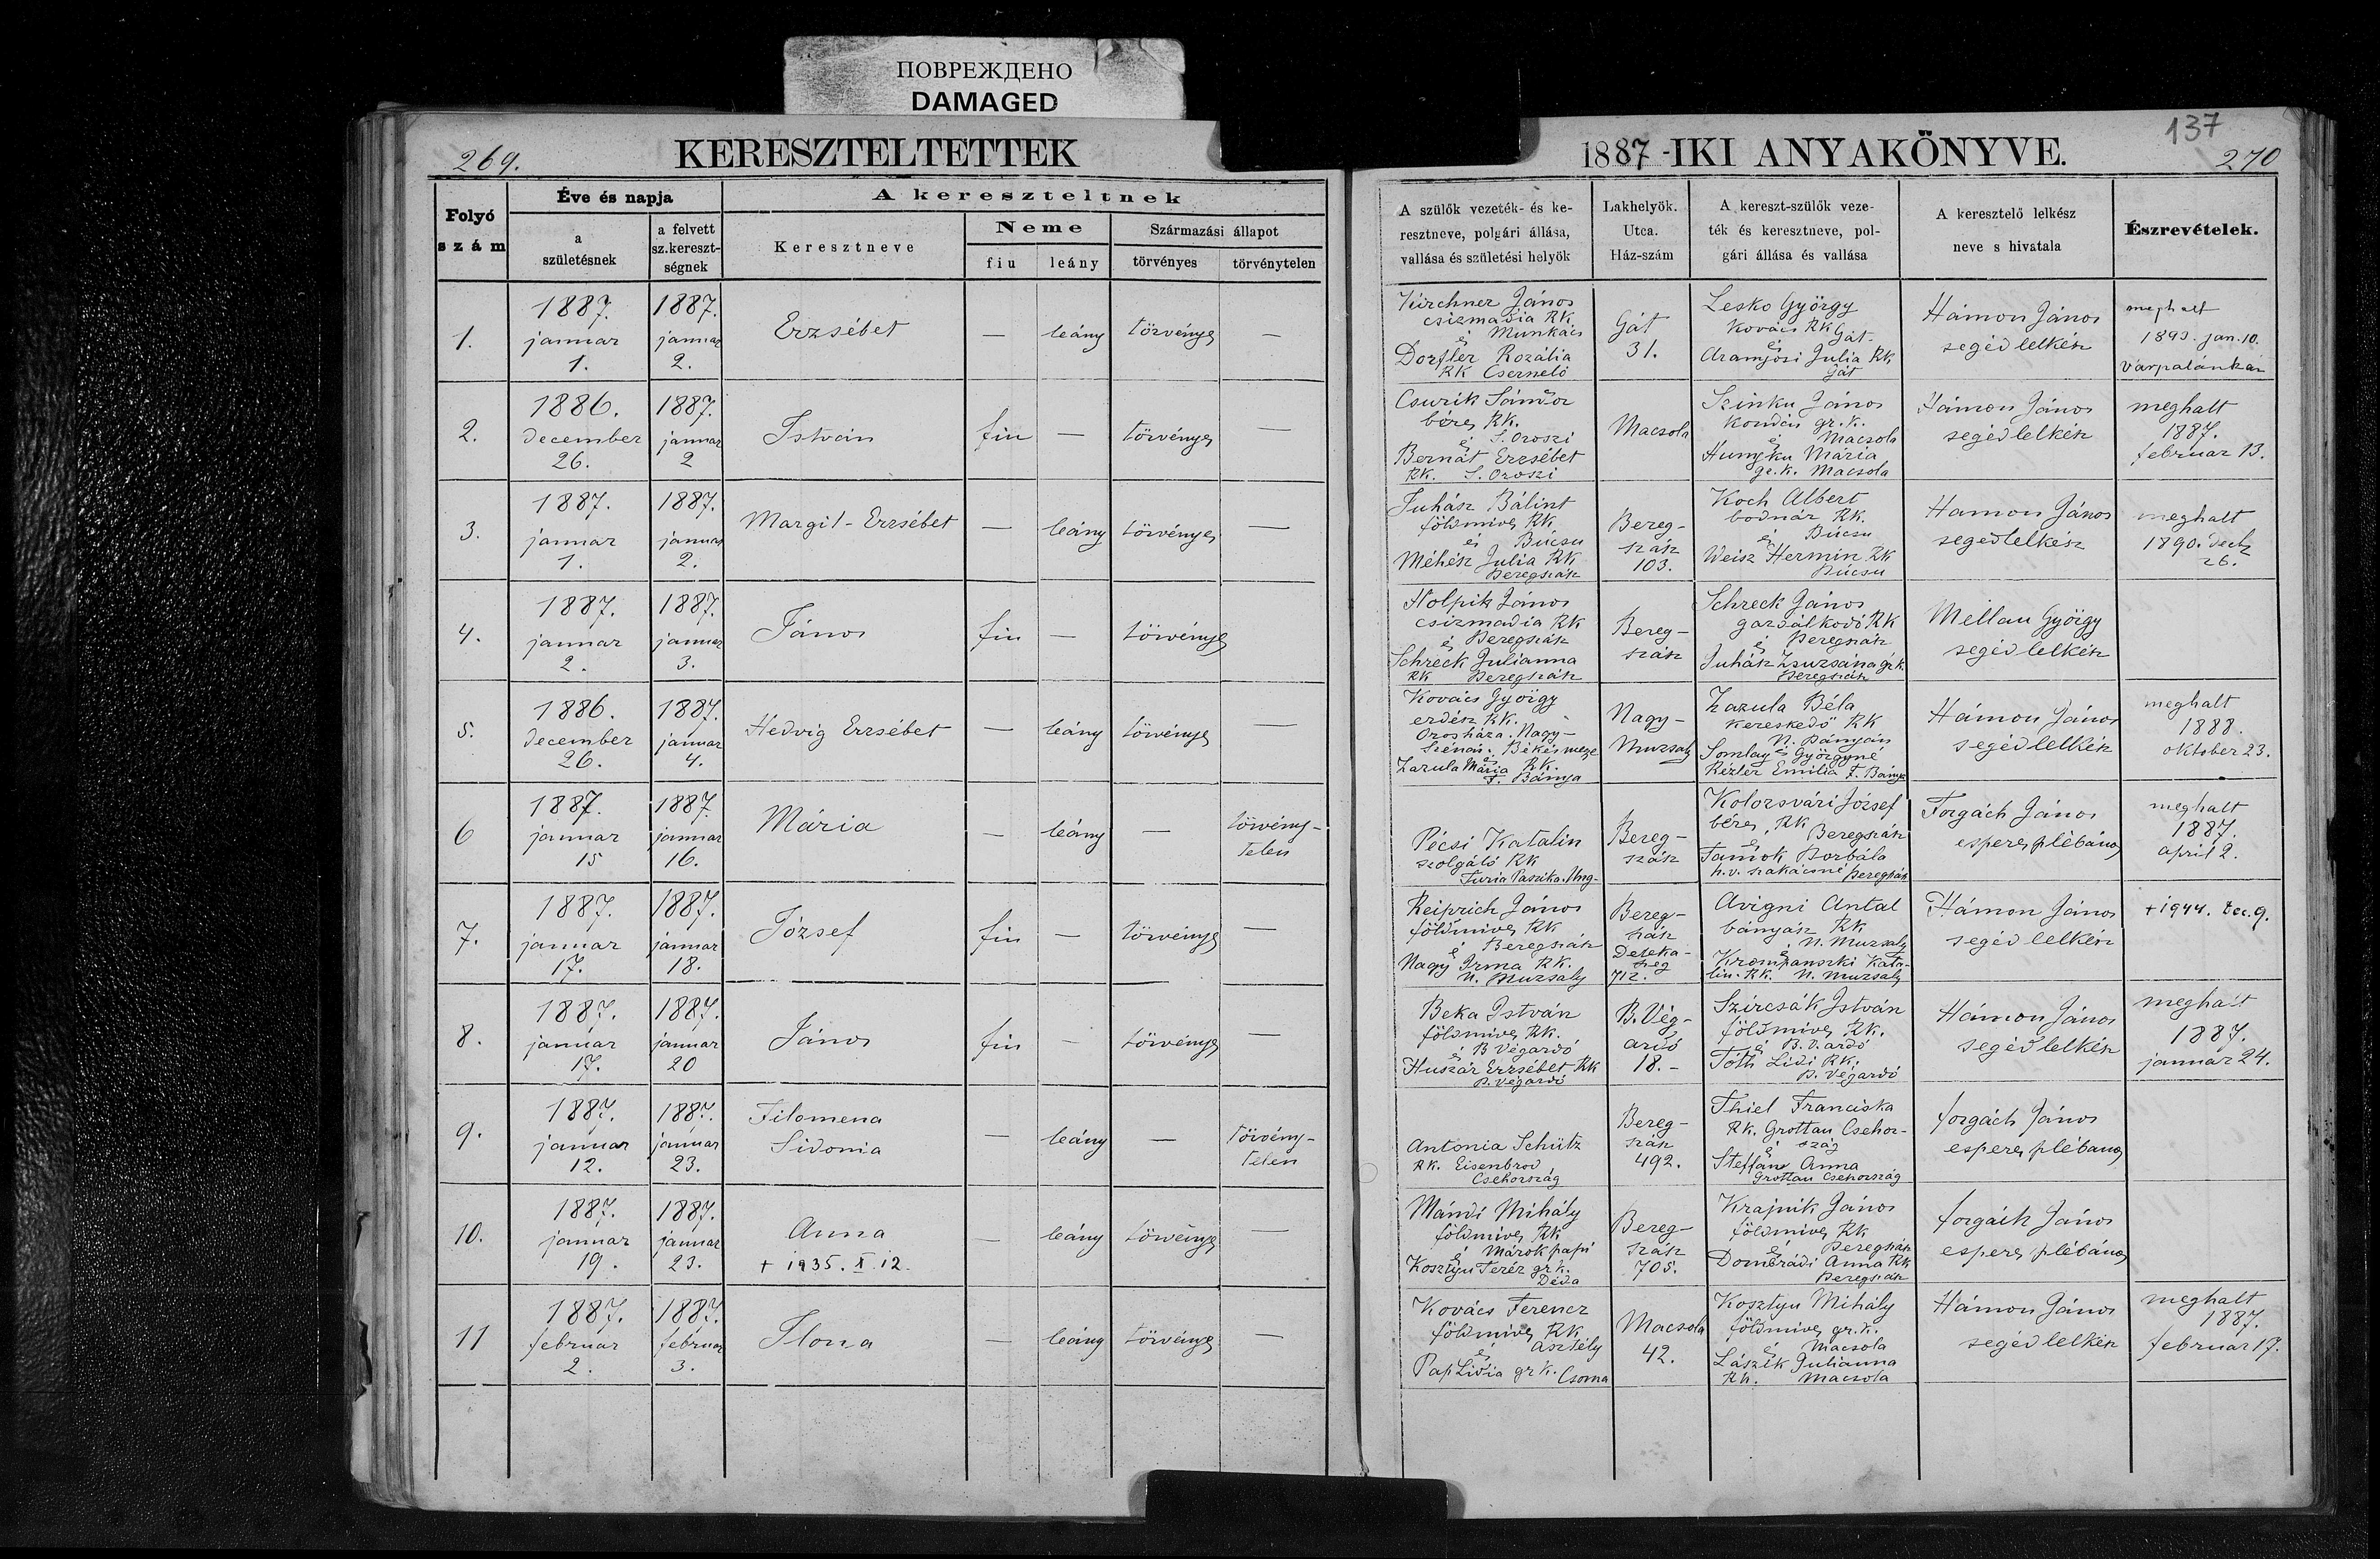 ПОВРЕЖДЕНО
DAMAGED
269.
KERESZTELTETTEK
Folyó szám
Éve és napja
a születésnek
a felvett sz.kereszt-ségnek
A kereszteltnek
Keresztneve
Neme
fiu
leány
Származási állapot
törvényes
törvénytelen
1.
1887. januar 1.
1887. januar 2.
Erzsébet
—
leány
törvényes
—
2.
1886. december 26.
1887. januar 2
István
fiu
—
törvényes
—
3.
1887. januar 1.
1887. januar 2.
Margit-Erzsébet
—
leány
törvényes
—
4.
1887. januar 2.
1887. januar 3.
János
fiu
—
törvényes
5.
1886. december 26.
1887. januar 4.
Hedvig Erzsébet
—
leány
törvényes
—
6
1887. januar 15
1887. januar 16.
Mária
—
leány
—
törvény-
telen
7.
1887. januar 17.
1887. januar 18.
József
fiu
—
törvényes
—
8.
1887. januar 17.
1887. januar 20
János
fiu
—
törvényes
—
9.
1887. januar 12.
1887. januar 23.
Filomena
Sidonia
—
leány
—
törvény-
telen
10.
1887. januar 19.
1887. januar 23.
Anna
+ 1935. X. 12.
—
leány
törvényes
—
11
1887. februar 2.
1887. februar 3.
Ilona
—
leány
törvényes
—
137
1887-IKI ANYAKÖNYVE.
270
A szülők vezeték- és ke-
resztneve, polgári állása,
vallása és születési helyök
Lakhelyök.
Utca.
Ház-szám
A kereszt-szülők veze-
ték és keresztneve, pol-
gári állása és vallása
A keresztelő lelkész
neve s hivatala
Észrevételek.
Kirchner János
csizmadia RK
és Munkács
Dorfler Rozália
RK Csernelö
Gát
31.
Lesko György
Kovács RK Gát.
és
Julia RK
Gát
Hámon János
segéd lelkész
meghalt
1893. jan. 10.
Várpalánkán
Csurik Sándor
béres RK.
és S. Oroszi
Bernát Erzsébet
RK. S. Oroszi
Macsola
Szinku János
kondás gr.k.
és Macsola
Mária
gr.k. Macsola
Hámon János
segéd lelkész
meghalt
1887.
februar 13.
Juhász Bálint
földmives RK.
és Búcsu
Méhész Julia RK
Beregszász
Bereg-
szász
103.
Koch Albert
bodnár RK.
és Búcsu
Weisz Hermin RK
Búcsu
Hamon János
segédlelkész
meghalt
1890. decz
26.
Holpik János
csizmadia RK
és Beregszász
Schreck Julianna
RK Beregszász
Bereg-
szász
Schreck János
gazdálkodó RK
és Beregszász
Juhász Zsuzsána gr.k.
Beregszász
Mellau György
segéd lelkész
Kovács György
erdész RK.
Orosháza. Nagy-
Szénás. Békés megye
és
Zazula Mária RK.
F. Bánya
Nagy-
Muzsaly
Zazula Béla
kereskedő RK
N. Bányán
Somlay és Györgyné
Rézler Emilia F. Bánya
Hámon János
segéd lelkész
meghalt
1888.
oktober 23.
Pécsi Katalin
szolgáló RK
Turia Paszika. Ung-
Bereg-
szász
Kolozsvári József
béres, RK Beregszász
és
Tamók Borbála
h.v. szakácsné Beregszász
Forgách János
esperes plébános
meghalt
1887.
april 2.
Reiprich János
földmives RK
és Beregszász
Nagy Irma RK.
N. Muzsaly
Bereg-
szász
712.
Avigni Antal
bányász RK
és N. Muzsaly
Krompanszki Kata-
lin. RK. N. Muzsaly
Hámon János
segéd lelkész
+ 1944. dec. 9.
Beka István
földmives RK.
és B Végardó
Huszár Erzsébet RK
B. Végardó
B. Vég-
ardó
18.-
Szircsák István
földmives RK.
és B. V. ardó
Tóth Lidi RK.
B. Végardó
Hámon János
segéd lelkész
meghalt
1887.
januar 24.
Antonia Schütz
RK. Eisenbrod
Csehország
Bereg-
szász
492.
Thiel Franciska
RK. Grottau Csehor-
és szág
Steffan Anna
Grottau Csehország
forgách János
esperes plébános
Mándi Mihály
földmives RK
és Márokpapi
Kosztyu Teréz gr.k.
Déda
Bereg-
szász
705.
Krajnik János
földmives RK
és Beregszász
Dombrádi Anna RK
Beregszász
forgách János
esperes plébános
Kovács Ferencz
földmives RK
és Asztély
Pap Lidia gr k. Csoma
Macsola
42.
Kosztyu Mihály
földmives gr.k.
és Macsola
Lászik Julianna
RK. Macsola
Hámon János
segéd lelkész
meghalt
1887.
februar 17.